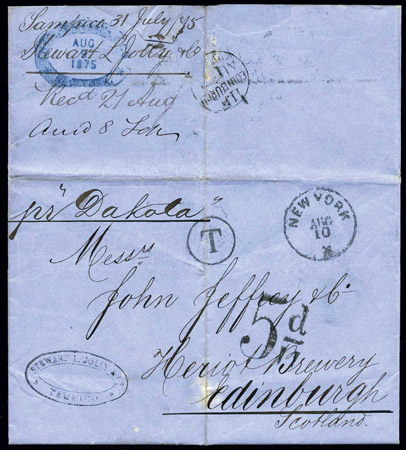 Tampico 31 July /75
Stewart L Jolly & Co
AUG
1875
Recd 21 Aug
Ansd 8 Feb
EDINBURGH
pr "Dakota"
NEW YORK
AUG
10
T
Messrs
John Jeffrey & Co
5d
Heriot Brewery
Edinburgh
Scotland.
STEWART L. JOLLY & Co
TAMPICO